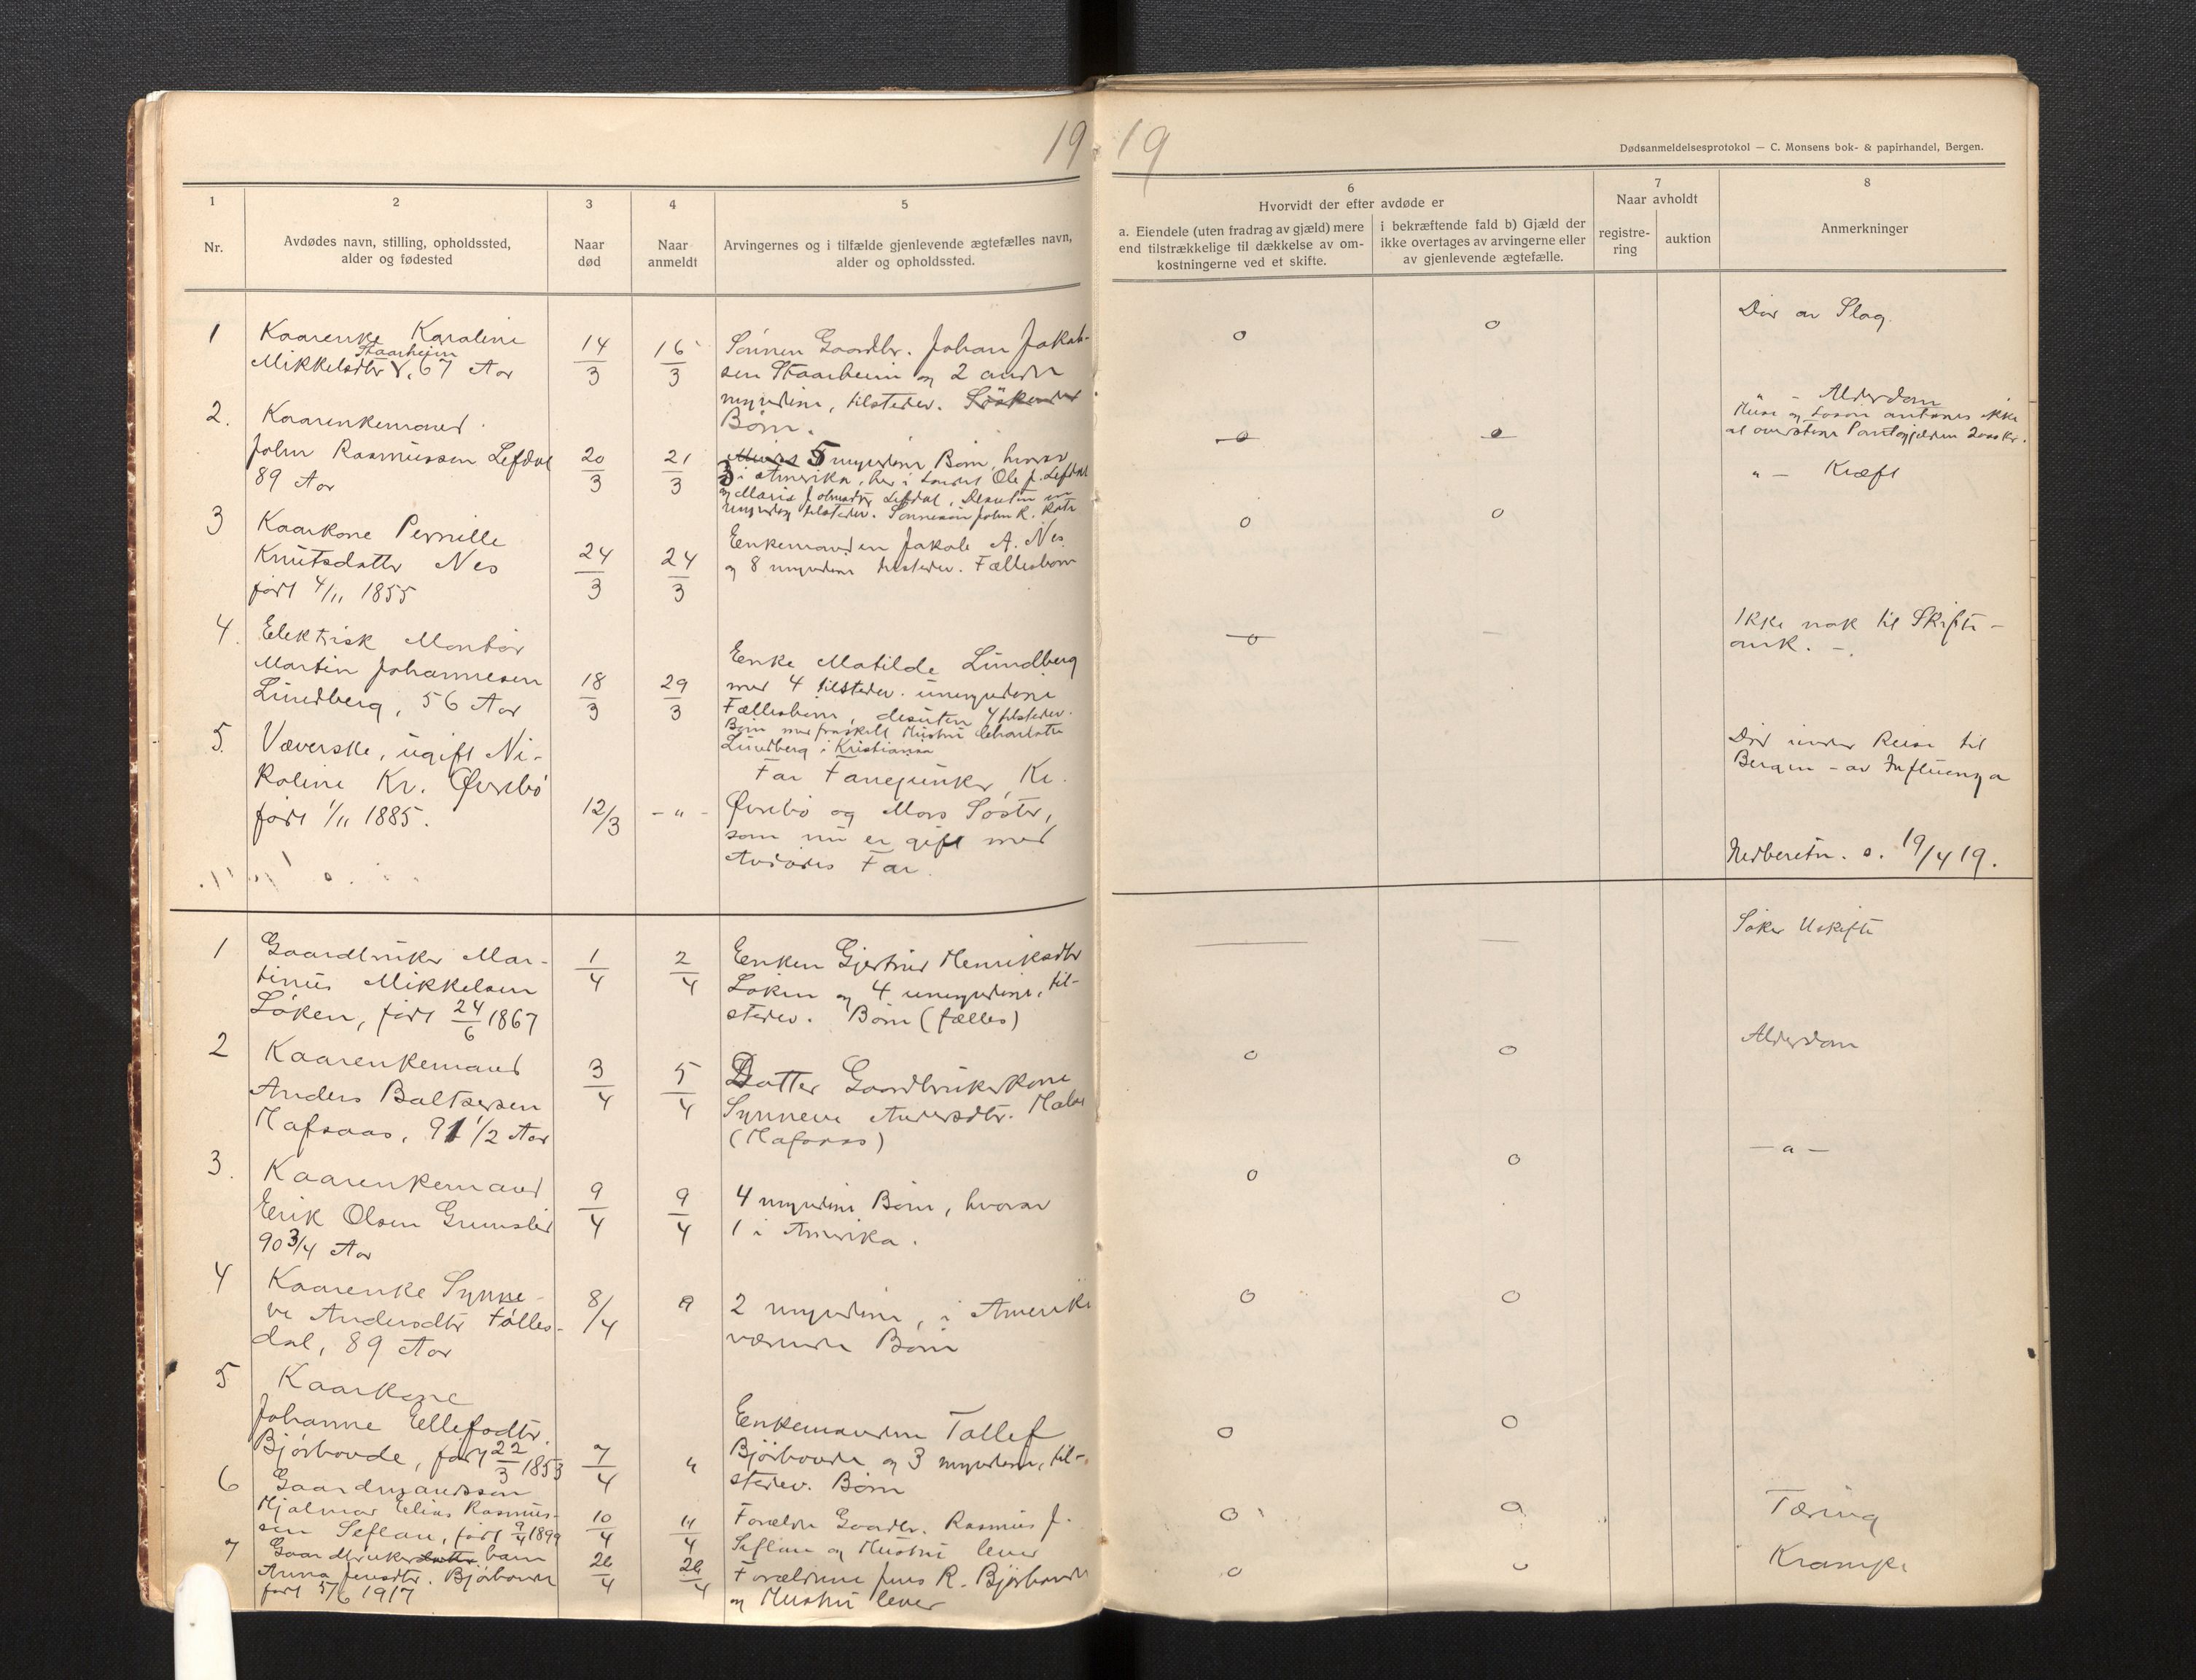 19
19
Dødsanmeldelsesprotokol — C. Monsens bok- & papirhandel, Bergen.
1
Nr.
2
Avdødes navn, stilling, opholdssted,
alder og fødested
3
Naar
død
4
Naar
anmeldt
5
Arvingernes og i tilfælde gjenlevende ægtefælles navn,
alder og opholdssted.
6
Hvorvidt der efter avdøde er
a. Eiendele (uten fradrag av gjæld) mere
end tilstrækkelige til dækkelse av om-
kostningerne ved et skifte.
i bekræftende fald b) Gjæld der
ikke overtages av arvingerne eller
av gjenlevende ægtefælle.
7
Naar avholdt
registre-
ring
auktion
8
Anmerkninger
1
Kaarenke Karoline
Staarheim
Mikkelsdtr, 67 Aar
14/3
16/3
Sønnen Gaardbr. Johan Jakob-
sen Staarheim og 2 andre
myndine, tilstedev. Söskende
Börn.
o
o
Död av Slag.
2.
Kaarenkemand
John Rasmussen Lefdal
89 Aar
20/3
21/3
5 myndine Börn, hvorav
3 i Amerika, her i Landet Ole J. Lefdal
og Maria Johnsdtr Lefdal, Desuten en
myndig tilstedev. Sönnesön John R.
o
o
" - Alderdom
Huse og Lösöre antages ikke
at overstige Pantegjelden 2000 Kr.
3
Kaarkone Pernille
Knutsdatter Nes
född 4/11 1855
24/3
24/3
Enkemanden Jakob A. Nes
og 8 myndine tilstedev. Fællesbörn
o
o
" - Kræft
4.
Elektrisk Montör
Martin Johannesen
Lundberg, 56 Aar
18/3
29/3
Enke Matilde Lundberg
med 4 tilstedev. umyndine
Fællesbörn, desuten 4 tilstedev.
Börn med fraskilt Hustru Charlotte
Lundberg i Kristiania
o
-
Ikke nok til Skifte-
omk. -.
5.
Væverske, ugift Ni-
koline Kr. Øvrebö
född 1/11 1885.
12/3
- " -
Far Fanejunker Kr.
Øvrebö og Mors Söster,
som nu er gift med
Avdödes Far.
Död under Reise til
Bergen - av Influenza
Nedberetn. s. 19/4 19.
1
Gaardbruker Mar-
tinus Mikkelsen
Löken, född 24/6 1867
1/4
2/4
Enken Gjertrud Henriksdtr
Löken og 4 umyndine, til-
stedev. Börn (fælles)
—
—
Söker Uskifte
2
Kaarenkemand
Anders Baltsersen
Hafsaas, 91 1/2 Aar
3/4
5/4
Datter Gaardbrukerkone
Synneve Andersdtr.
(Hafsaas)
o
o
Alderdom
3.
Kaarenkemand
Erik Olsen
90 3/4 Aar
9/4
9/4
4 myndine Börn, hvorav
1 i Amerika.
o
o
- " -
4
Kaarenke Synne-
ve Andersdtr Fölles-
dal, 89 Aar
8/4
9
2 myndine, i Amerika
værende Börn
o
o
5
Kaarkone
Johanne Ellefsdtr.
Bjórhovde, född 22/3 1853
7/4
"
Enkemanden Tollef
Bjórhovde og 3 myndine, til-
stedev. Börn
o
o
6
Gaardmandssön
Hjalmar Elias Rasmus-
sen Seflan, född 9/4 1899
10/4
11/4
Forældre Gaardbr. Rasmus J.
Seflan og Hustru lever
o
o
Tæring
7
Gaardbrukerdatter barn
Anna Jensdtr. Bjórhovde
född 5/6 1917
26/4
26/4
Forældrene Jens R. Bjórhovde
og Hustru lever
o
o
Krampe